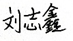 刘志鑫